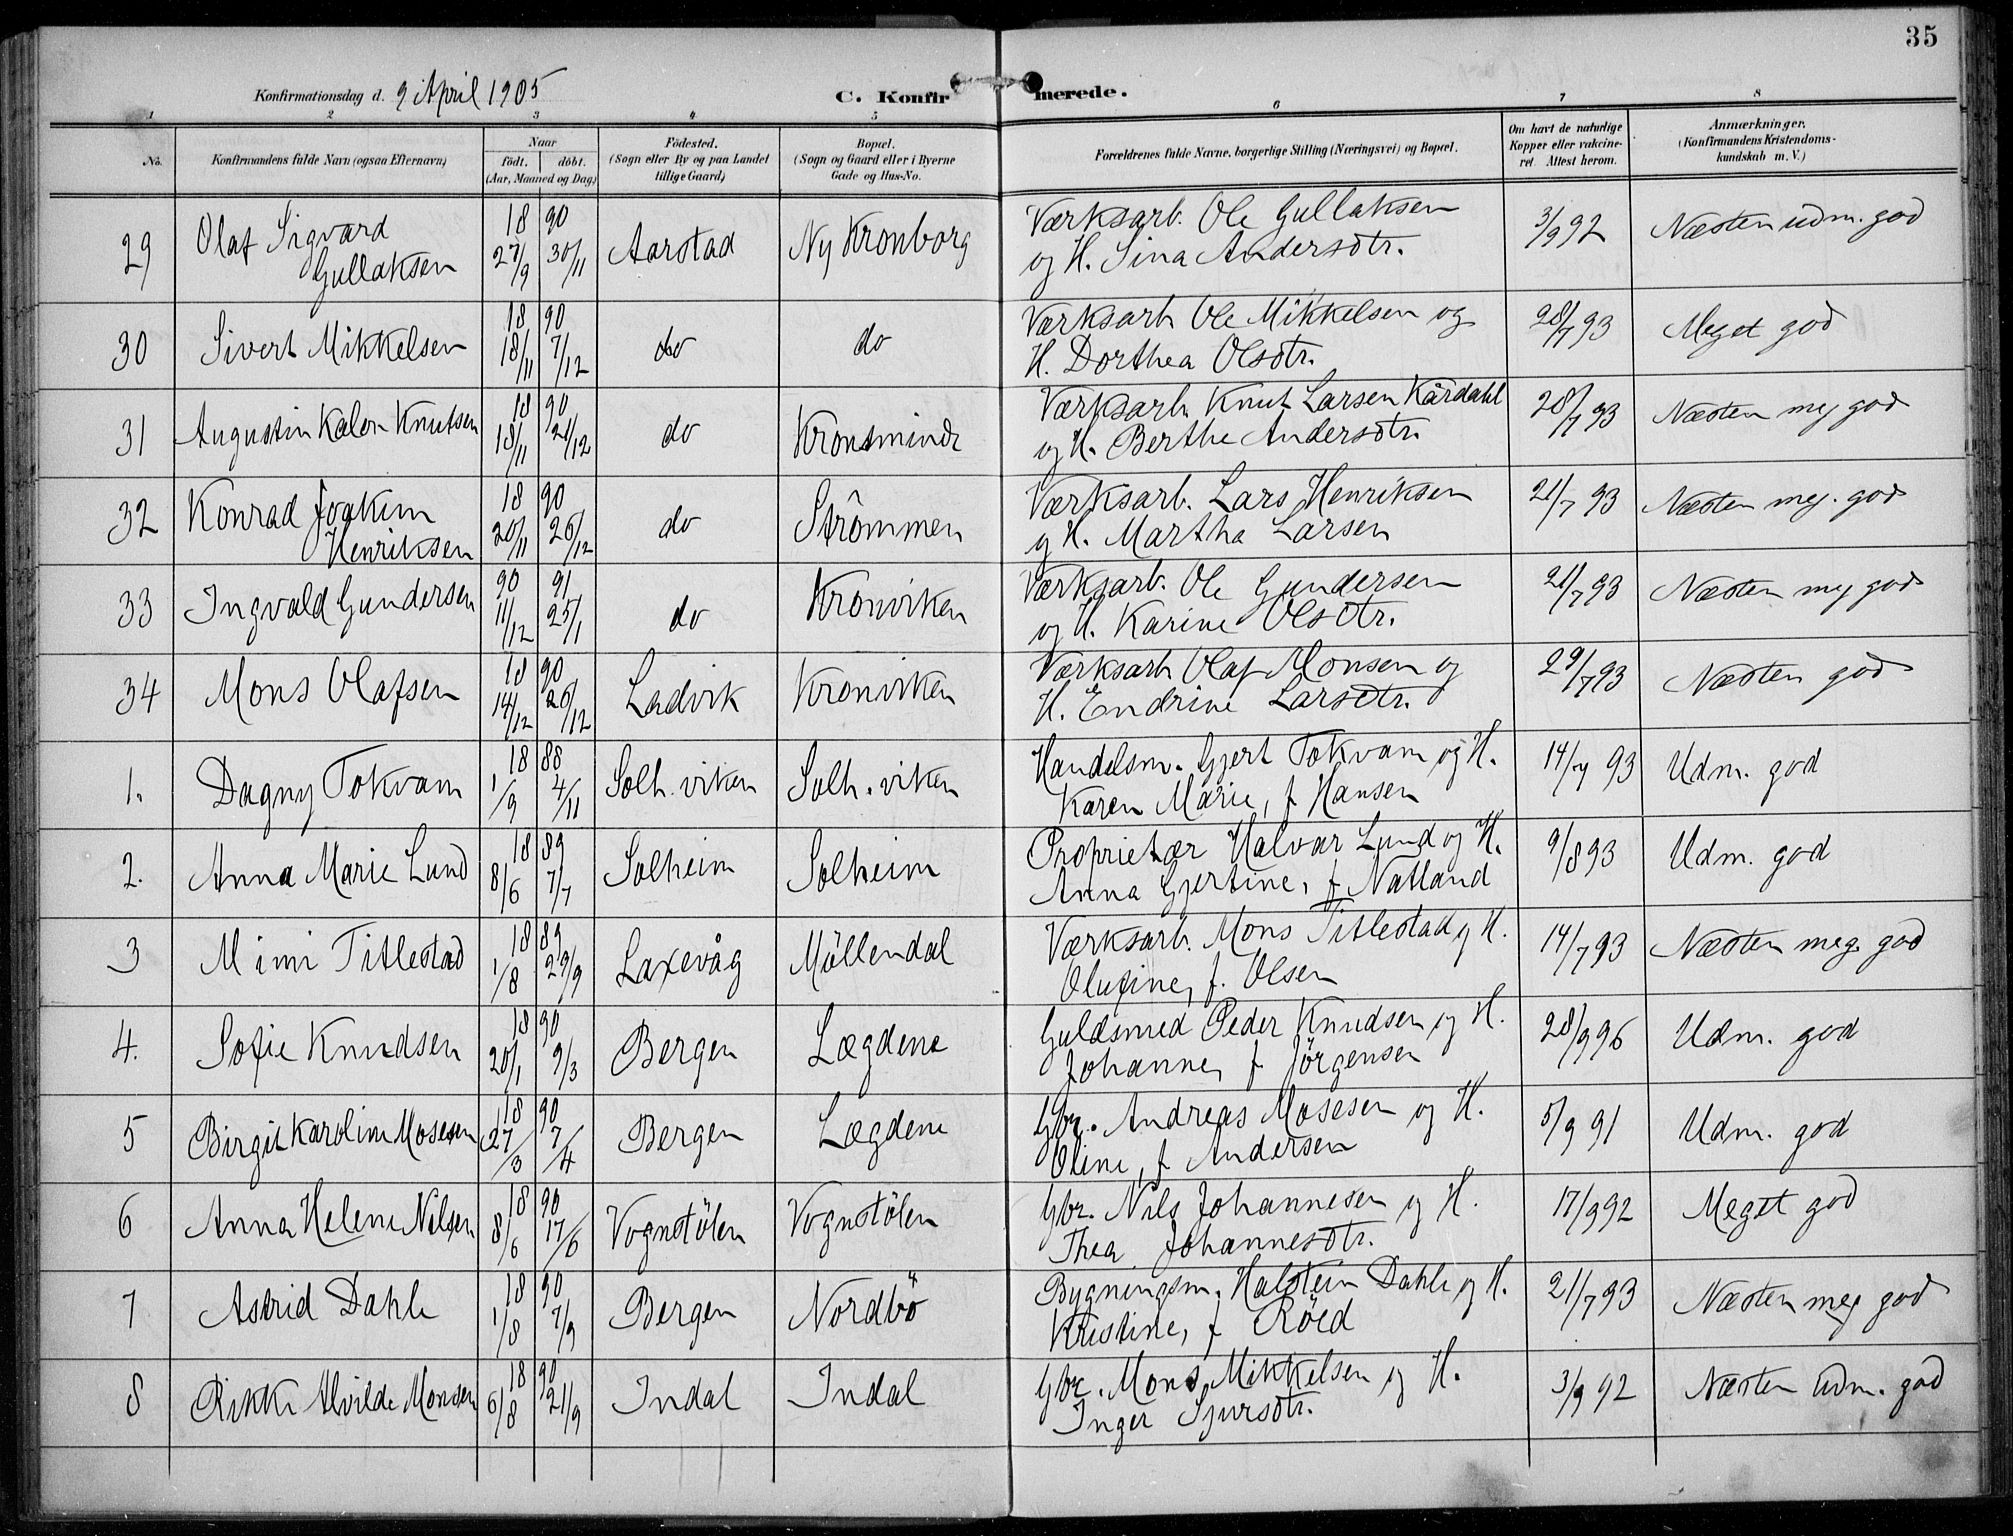 35
Konfirmationsdag d. 9 April 1905
C. Konfirmerede.
1 2 3 4 5 6 7 8
No. | Konfirmandens fulde Navn (ogsaa Efternavn) | Naar født. døbt. (Aar, Maaned og Dag) | Födested. (Sogn eller By og paa Landet tillige Gaard) | Bopæl. (Sogn og Gaard eller i Byerne Gade og Hus-No. | Forældrenes fulde Navne, borgerlige Stilling (Næringsvei) og Bopæl. | Om havt de naturlige Kopper eller vakcineret. Attest herom. | Anmærkninger. (Konfirmandens Kristendomskundskab m. V.)
29 Olaf Sigvard Gullaksen 18 90 27/9 30/11 Aarstad Ny Kronborg Værksarb. Ole Gullaksen og H. Sina Andersdtr. 3/9 92 Næsten udm. god
30 Sivert Mikkelsen 18 90 18/11 7/12 do do Værksarb Ole Mikkelsen og H. Dorthea Olsdtr. 28/7 93 Meget god
31 Augustin Kalon Knutsen 18 90 18/11 21/12 do Kronsminde Værksarb. Knut Larsen Kårdahl og H. Berthe Andersdtr. 28/7 93 Næsten meg god
32 Konrad Joakim Henriksen 18 90 20/11 26/12 do Strömmen Værksarb. Lars Henriksen og H. Martha Larsen 21/7 93 Næsten meg. god
33 Ingvald Gundersen 90 91 11/12 25/1 do Kronviken Værksarb. Ole Gundersen og H. Karine Olsdtr. 21/7 93 Næsten meg god
34 Mons Olafsen 18 90 14/12 26/12 Ladvik Kronviken Værksarb Olaf Monsen og H. Endrine Larsdtr. 29/7 93 Næsten god
1. Dagny Tokvam 18 88 1/9 4/11 Solh. viken Solh. viken Handelsm. Gjert Tokvam og H. Karen Marie, f Hansen 14/7 93 Udm. god
2. Anna Marie Lund 18 89 8/6 7/7 Solheim Solheim Proprietær Halvar Lund og H. Anna Gjertine, f Natland 9/8 93 Udm. god
3 Mimi Titlestad 18 89 1/8 29/9 Laxevåg Möllendal Værksarb. Mons Titlestad og H. Olufine, f. Olsen 14/7 93 Næsten meg god
4. Sofie Knudsen 18 90 20/1 9/3 Bergen Lægdene Guldsmed Peder Knudsen og H. Johanne, f Jörgensen 28/9 96 Udm. god
5 Birgit Karoline Mosesen 18 90 27/3 7/4 Bergen Lægdene Gbr. Andreas Mosesen og H. Oline, f Andersen 5/9 91 Udm. god
6 Anna Helene Nilsen 18 90 8/6 17/6 Vognstölen Vognstölen Gbr. Nils Johannesen og H. Thea Johannesdtr. 17/9 92 Meget god
7 Astrid Dahle 18 90 1/8 7/9 Bergen Nordbö Bygningsm. Halstein Dahle og H. Kristine, f Röed 21/7 93 Næsten meg god
8 Rikke Alvilde Monsen 18 90 6/8 21/9 Indal Indal Gbr. Mons Mikkelsen og H. Inger Sjursdtr. 3/9 92 Næsten udm. god